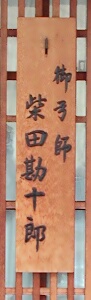 御弓師
柴田勘十郎